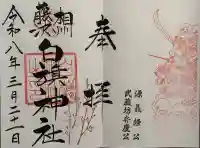 奉拝
相州
藤沢
白旗神社
令和八年三月二十一日
源義経公
武蔵坊弁慶公